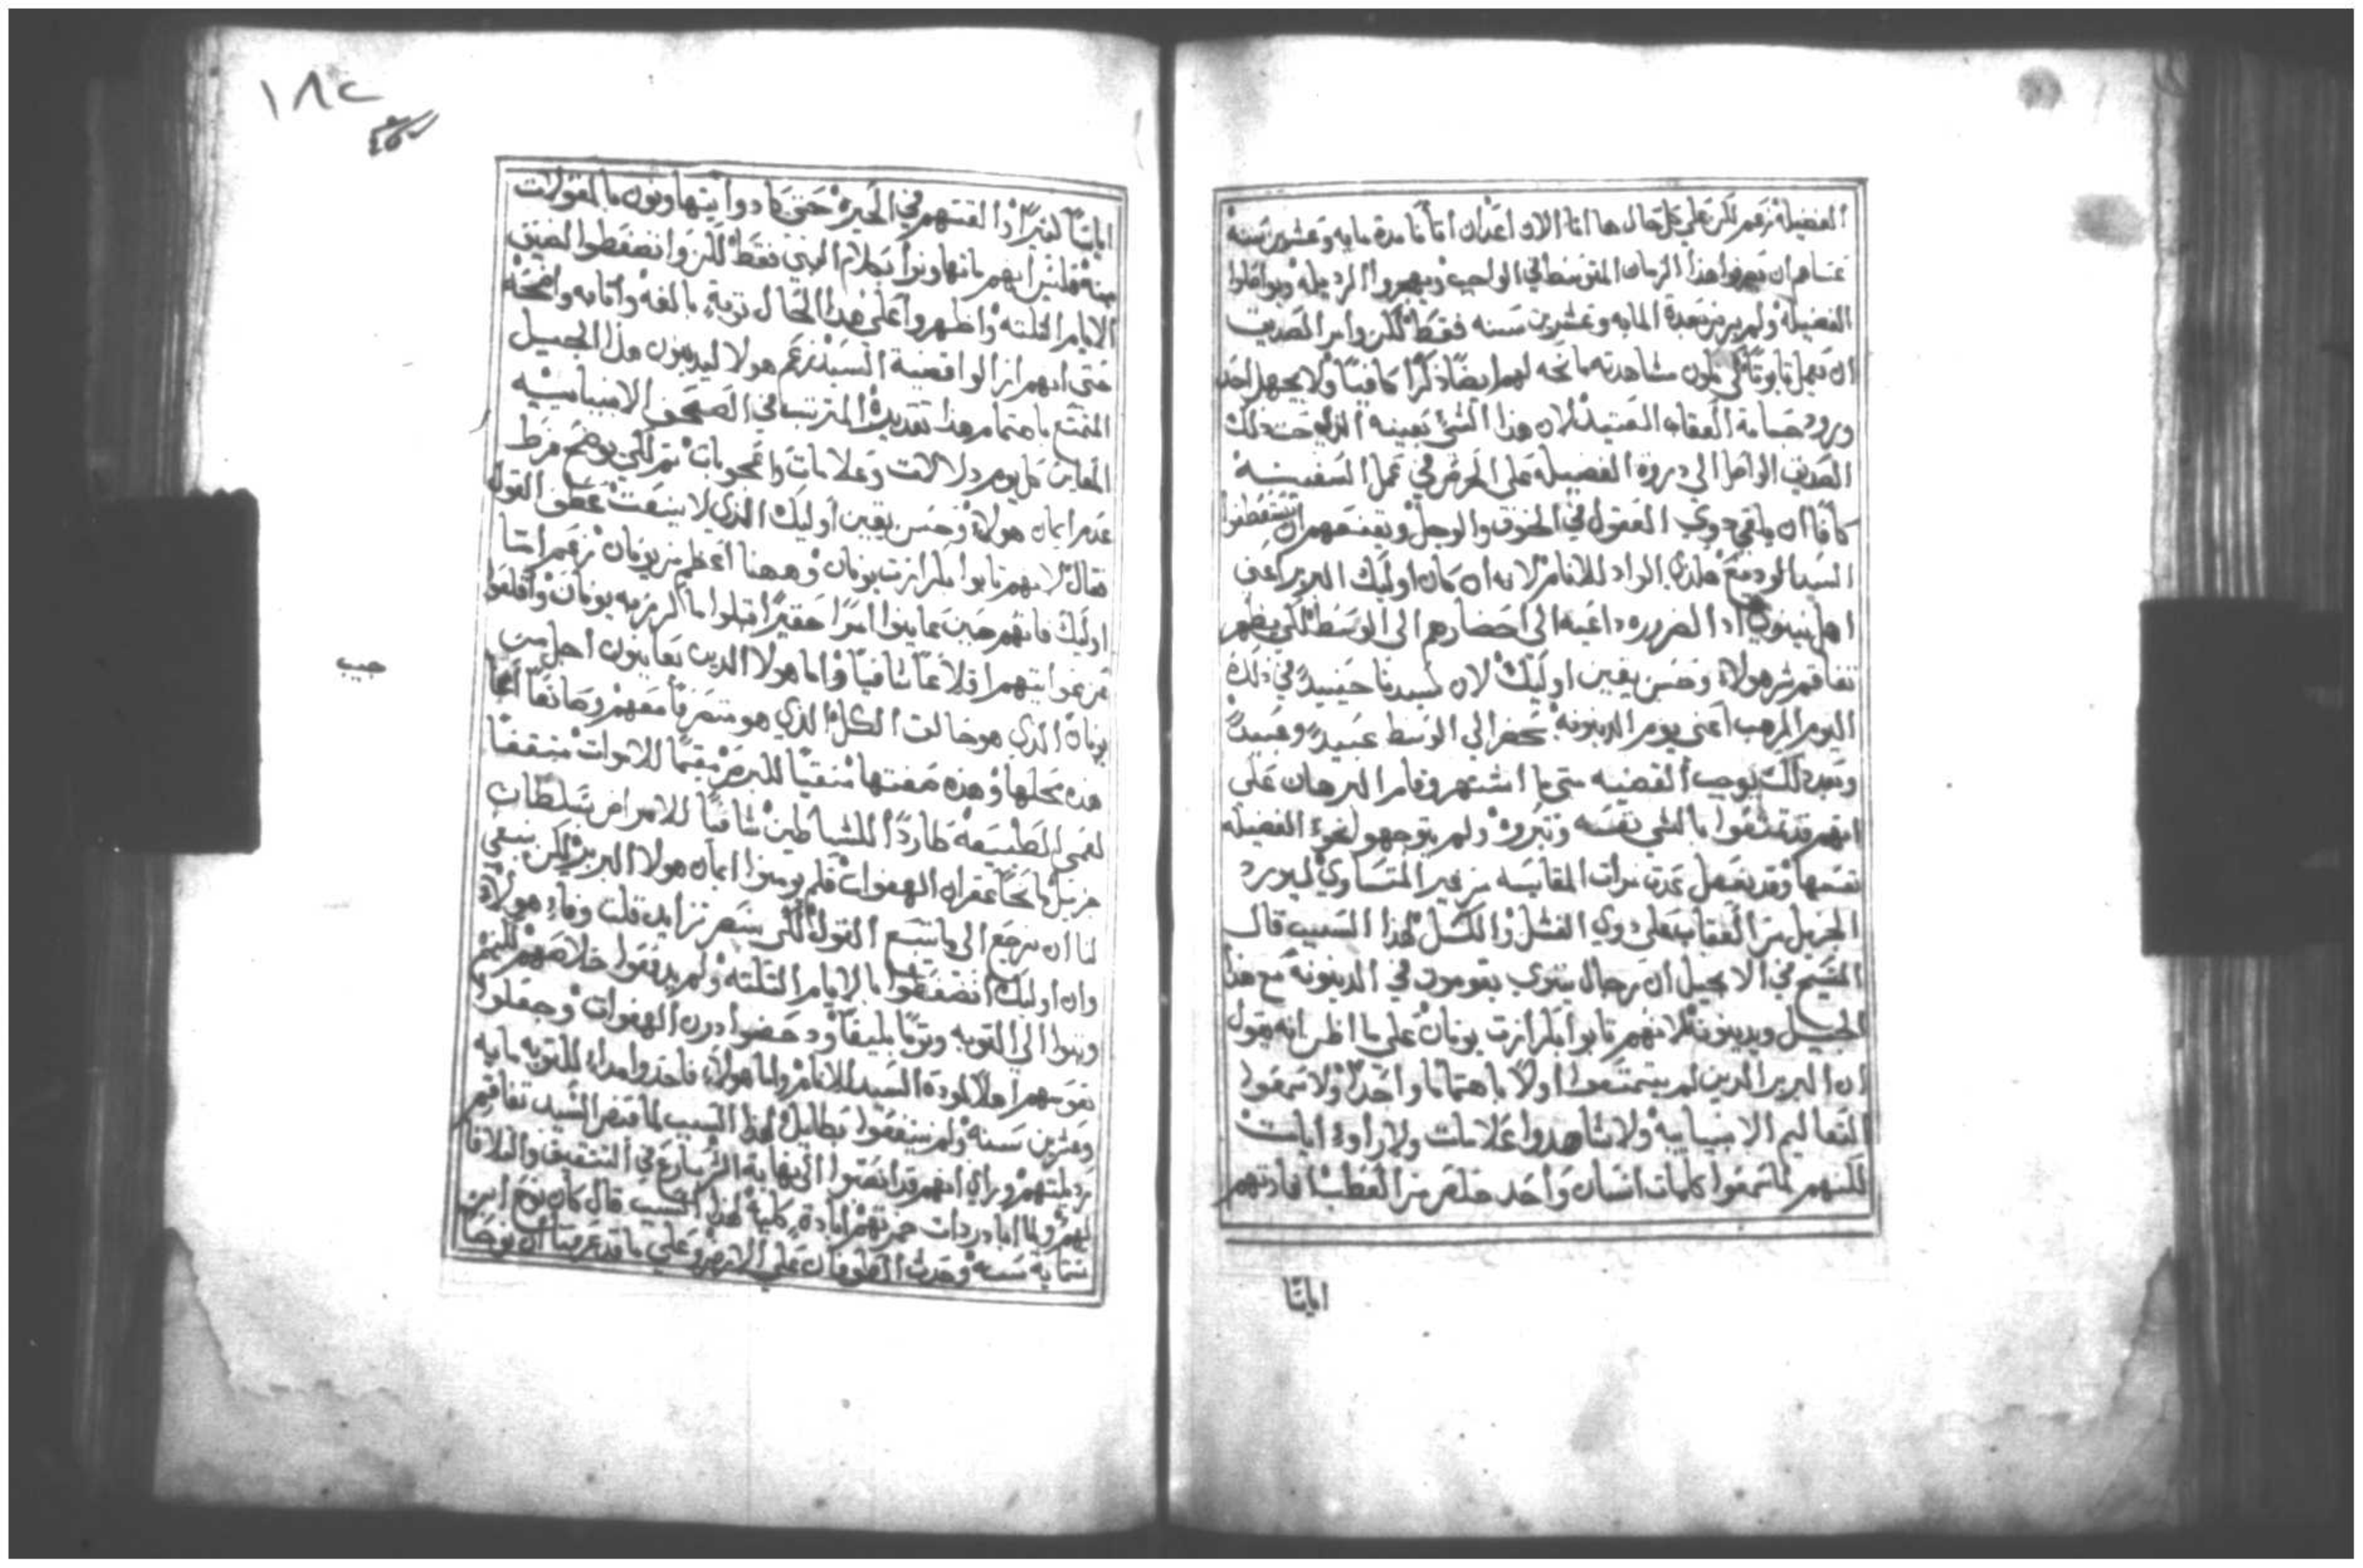 الفضيلة زعم لكن على كل حال ها انا الان اعدان اتانا مدة مايه وعشرين سنه
عساهم ان يعرفوا هذا الزمان المتوسط في الواجب ويهجروا الرديله ويواصلوا
الفضيلة ولم يريز بعدة المايه وعشرين سنه فقط لكن وامر الصديق
ان يعمل تابوتا كي تكون مشاهدته مانحه لهم ايضا ذكرا كافيا ولا يجهل احد
ورود جسامة العقاب العتيد لان هذا الشي بعينه الذي حث ذلك
الصديق الواصل الي دروة الفضيله على الحرص في عمل السفينه
كافا ان يلقي دوي العقول في الخوف والوجل ويقنعهم ان يستعطفوا
السيد الوديع هكذي الواد للانام لانه ان كان اوليك البربر اعني
اهل نينوي اذا الضروره داعيه الى احضارهم الى الوسط لكي يظهر
تفاقم شر هولاء وحسن يقين اوليك لان سيدنا حينيد في ذلك
اليوم المرهب اعني يوم الدينونه يحضر الي الوسط عبيد وعبيد
وبعد ذلك يوجب القضيه متى ما اشتهر وقام البرهان علي
انهم قد تمتعوا بالشي نفسه وتبروه ولم يتوجهوا نحو الفضيله
نفسها وقد يفعل عدت مرات المقايسه من غير المتساوي ليورد
الجزيل من العقاب على دوي الفشل والكسل لهذا السبب قال
المسيح في الانجيل ان رجال نينوي يقومون في الدينونه مع هذا
الجيل ويدينونه لانهم تابوا بكرازت يونان علي ما اظن انه يقول
ان البربر الدين لم يتمتعوا اولا باهتماما واحدا ولا سمعوا
التعاليم الانبيايه ولا شاهدوا علامات ولا راوا ايات
لكنهم لما سمعوا كلمات انسان واحد خلص من العطب افادتهم
اياتا
١٨٢
اياتا كثيرا اذ القتهم في الحيرة حتى كادوا يتهاونون بالمقولات
منه فليس انهم ما تهاونوا بكلام النبي فقط لكن وانضغطوا لضيق
الايام الثلثه واظهروا على هذا الحال توبة بالغه وانابه واضحه
حتى انهم ازالوا قضية السيد زعم هولا ليدينون هذا الجيل
المتمتع باهتمام هذا تقديره المتربي في الصحف الانبيايه
المعاين كل يوم دلالات وعلامات واعجوبات ثم لكي يوضح فرط
عدم ايمان هولاء وحسن يقين اوليك الذي لا ينعت عطف القول
فقال لانهم تابوا بكرازت يونان وههنا اعظم من يونان زعم اما
اوليك فانهم حين عاينوا امرا حقيرا قبلوا ما كرز به يونان واقلعوا
عن عوايتهم اقلاعا شافيا واما هولا الدين يعاينون اجل من
حبيب
يونان الذي هو خالق الكل الذي هو متصرفا معهم وصانعا ايات
هذه محلها وهذه صفتها منقيا للبرص مقيما للاموات مثقفا
لعمي الطبيعة طاردا للشياطين شافيا للامراض بسلطان
جزيل مانحا غفران الهفوات فلم يومنوا ايمان هولا البربر لكن ينبغي
لنا ان نرجع الى ما يتبع القول لكي ننعم تزايد قلت وفاء هولاء
وان اوليك انضغطوا بالايام الثلثه ولم يدفعوا خلاصهم لكنهم
وثبوا الي التوبه وثوبا بليغا ودحضوا درن الهفوات وجعلوا
نفوسهم اهلا لمودة السيد للانام واما هولاء فاخدوا امداد للتوبه مايه
وعشرين سنه ولم ينتفعوا بطايل لهذا السبب لما نظر السيد تفاقم
رديلتهم وراي انهم قد انصبوا الى نهاية الشر سارع في التثقيف والتلافا
لهم ولما اباد ردات خمرتهم ابادة كلية لهذا السبب قال كان نوح ابن
ستماية سنه وحدث الطوفان على الارض وعلي ما قد عرفنا ان نوحا